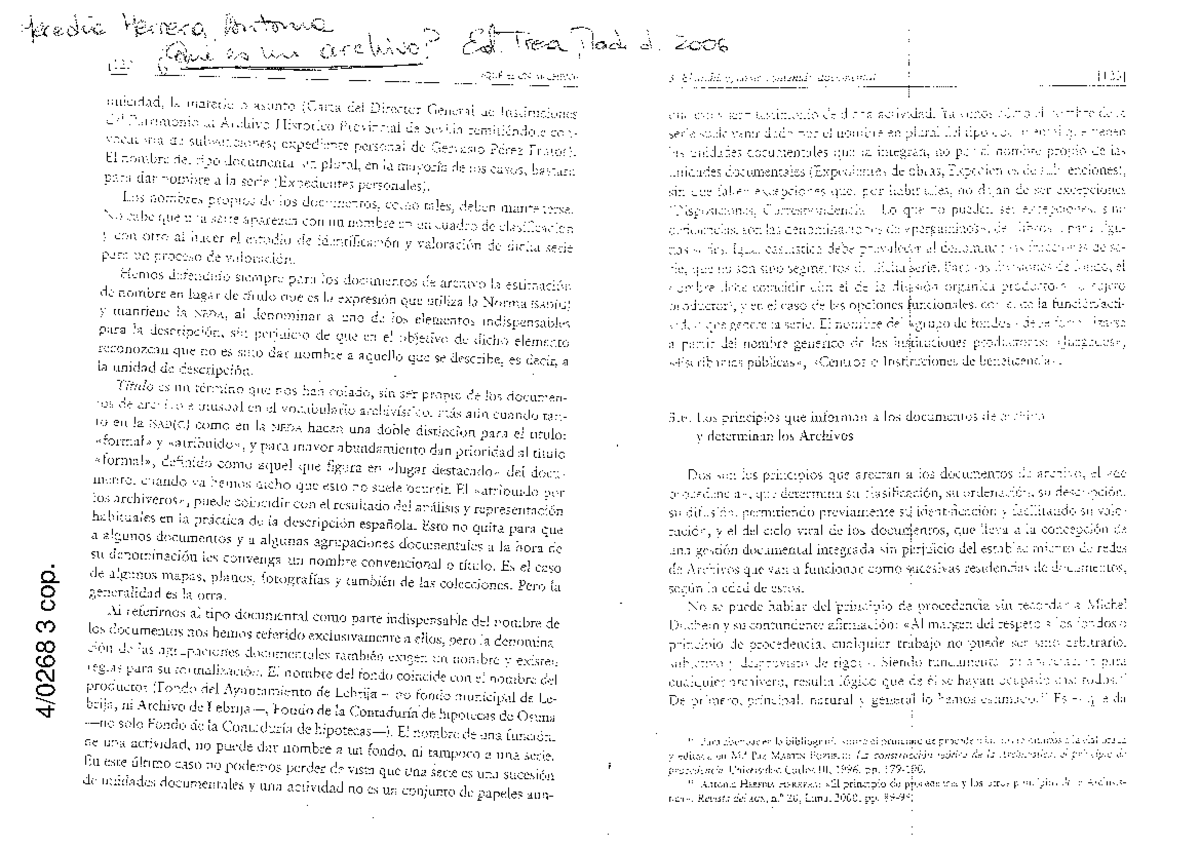 Heredia Herrera, Antonia
¿Qué es un archivo? Ed. Trea, Madrid. 2006
¿QUÉ ES UN ARCHIVO?
unicidad, la materia o asunto (Carta del Director General de Instituciones
del Patrimonio al Archivo Histórico Provincial de Sevilla remitiéndole con-
vocatoria de subvenciones; expediente personal de Gervasio Pérez
El nombre del tipo documental en plural, en la mayoría de los casos, bastará
para dar nombre a la serie (Expedientes personales).
Los nombres propios de los documentos, como tales, deben mantenerse.
No cabe que una serie aparezca con un nombre en un cuadro de clasificación
y con otro al hacer el estudio de identificación y valoración de dicha serie
para un proceso de valoración.
Hemos defendido siempre para los documentos de archivo la estimación
de nombre en lugar de título que es la expresión que utiliza la Norma ISAD(G)
y mantiene la NEDA, al denominar a uno de los elementos indispensables
para la descripción, sin perjuicio de que en el objetivo de dicho elemento
reconozcan que no es sino dar nombre a aquello que se describe, es decir, a
la unidad de descripción.
Título es un término que nos han colado, sin ser propio de los documen-
tos de archivo e inusual en el vocabulario archivístico, más aún cuando tan-
to en la ISAD(G) como en la NEDA hacen una doble distinción para el título:
«formal» y «atribuido», y para mayor abundamiento dan prioridad al título
«formal», definido como aquel que figura en «lugar destacado» del docu-
mento, cuando ya hemos dicho que esto no suele ocurrir. El «atribuido por
los archiveros», puede coincidir con el resultado del análisis y representación
habituales en la práctica de la descripción española. Esto no quita para que
a algunos documentos y a algunas agrupaciones documentales a la hora de
su denominación les convenga un nombre convencional o título. Es el caso
de algunos mapas, planos, fotografías y también de las colecciones. Pero la
generalidad es la otra.
Al referirnos al tipo documental como parte indispensable del nombre de
los documentos nos hemos referido exclusivamente a ellos, pero la denomina-
ción de las agrupaciones documentales también exigen un nombre y existen
reglas para su normalización. El nombre del fondo coincide con el nombre del
productor (Fondo del Ayuntamiento de Lebrija — no fondo municipal de Le-
brija, ni Archivo de Lebrija—, Fondo de la Contaduría de hipotecas de Osuna
—no solo Fondo de la Contaduría de hipotecas—). El nombre de una función,
de una actividad, no puede dar nombre a un fondo, ni tampoco a una serie.
En este último caso no podemos perder de vista que una serie es una sucesión
de unidades documentales y una actividad no es un conjunto de papeles aun-
4/0268 3 cop.
[133]
que estos sean testimonio de dicha actividad. Ya vemos cómo el nombre de la
serie suele venir dado por el nombre en plural del tipo documental que tienen
las unidades documentales que la integran, no por el nombre propio de las
unidades documentales (Expedientes de obras, Expedientes de subvenciones),
sin que falten excepciones que, por habituales, no dejan de ser excepciones
(Disposiciones, Correspondencia). Lo que no pueden ser excepciones, sino
deficiencias, son las denominaciones de «pergaminos», de «libros», para algu-
nas series. Igual casuística debe prevalecer al denominar las fracciones de se-
rie, que no son sino segmentos de dicha serie. Para las divisiones de fondo, el
nombre debe coincidir con el de la división orgánica productora (o sujeto
productor), y en el caso de las opciones funcionales, con el de la función/acti-
vidad que genere la serie. El nombre del «grupo de fondos» debe formalizarse
a partir del nombre genérico de las instituciones productoras: «Juzgados»,
«Escribanías públicas», «Centros o Instituciones de beneficencia».
Los principios que informan a los documentos de archivo
y determinan los Archivos
Dos son los principios que afectan a los documentos de archivo, el «de
procedencia», que determina su clasificación, su ordenación, su descripción,
su difusión, permitiendo previamente su identificación y facilitando su valo-
ración, y el del ciclo vital de los documentos, que lleva a la concepción de
una gestión documental integrada sin perjuicio del establecimiento de redes
de Archivos que van a funcionar como sucesivas residencias de documentos,
según la edad de estos.
No se puede hablar del principio de procedencia sin recordar a Michel
Duchein y su contundente afirmación: «Al margen del respeto a los fondos o
principio de procedencia, cualquier trabajo no puede ser sino arbitrario,
subjetivo y desprovisto de rigor». Siendo fundamental su aplicación para
cualquier archivero, resulta lógico que de él se hayan ocupado casi todos.
De primero, principal, natural y general lo hemos estimado. Es el que da
Para abundar en la bibliografía sobre el principio de procedencia
y editada en M.ª Paz Martín Pozuelo: La construcción teórica de la Archivística: el principio de
procedencia. Universidad Carlos III, 1996, pp. 179-190.
Antonia Heredia Herrera: «El principio de procedencia y los otros principios de la Archivís-
tica», Revista del AGN, n.º 20, Lima, 2000, pp. 89-95.